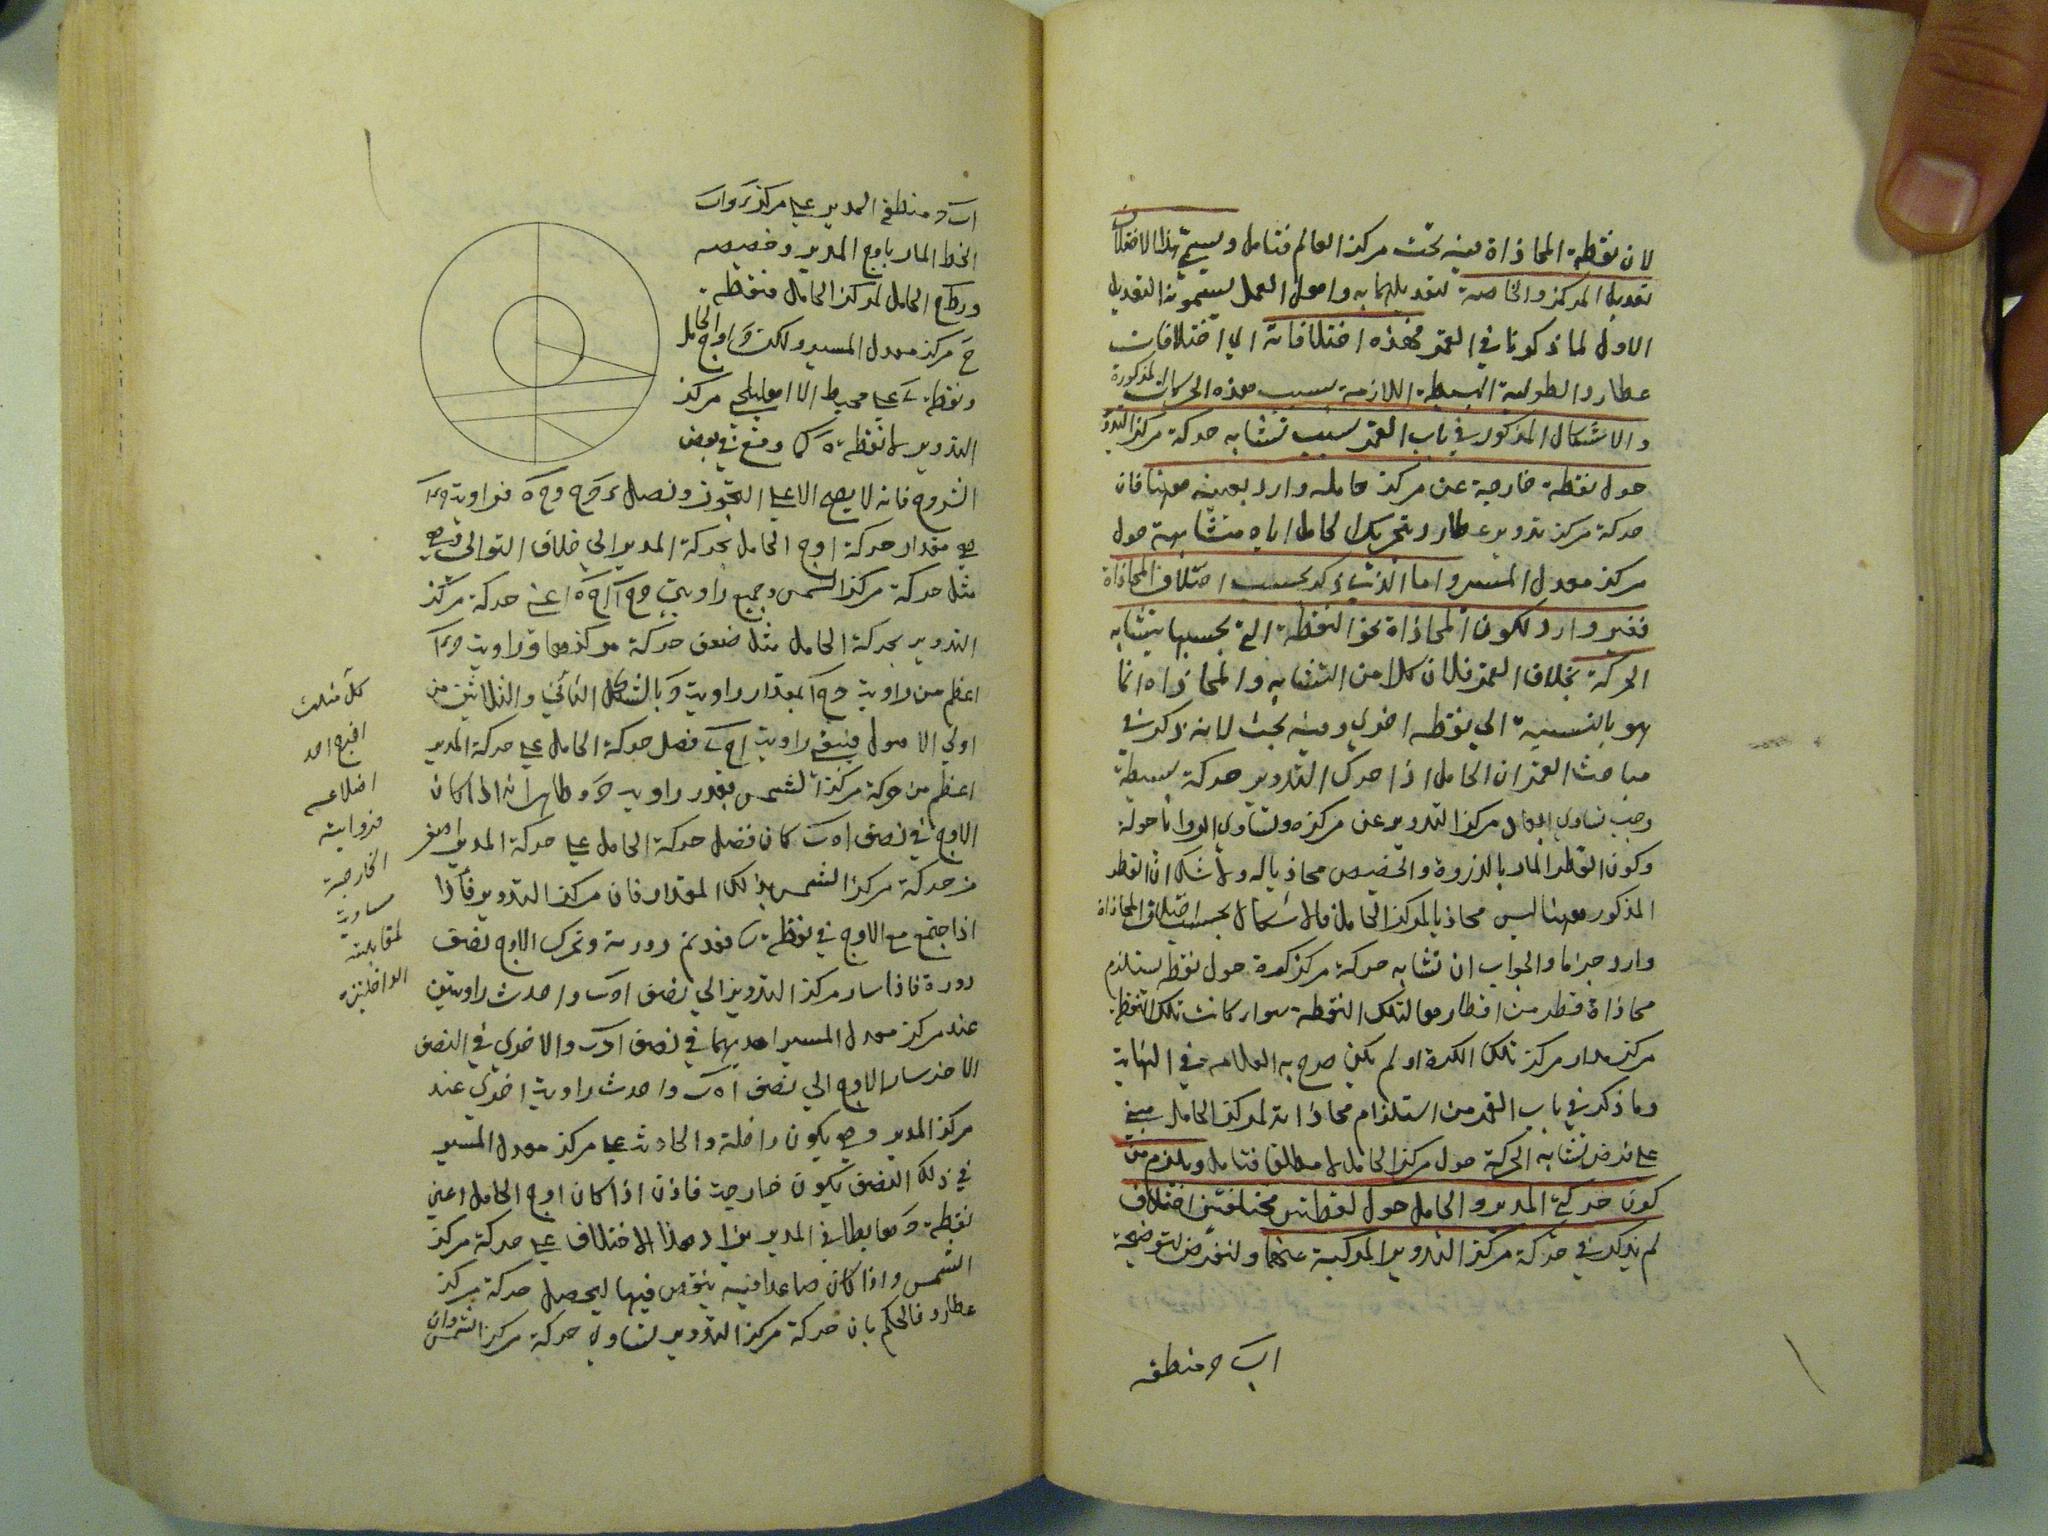 لان نقطة المحاذاة فيه تحت مركز العالم فتامل ويسمى هذا الاختلاف
تعديل المركز والخاصة لتعديلهما به واصول العمل يسمونه التعديل
الاول لما ذكرنا في القمر فهذه اختلافاته اي اختلافات
عطارد الطولية البسيطة اللازمة بسبب هذه الحركات المذكورة
والاشكال المذكور في باب القمر بسبب تشابه حركة مركز التدوير
حول نقطة خارجة عن مركز حامله وارد بعينه ههنا فان
حركة مركز تدوير عطارد بتحريك الحامل اياه متشابهة حول
مركز معدل المسير واما الذي ذكر بحسب اختلاف المحاذاة
فغير وارد لكون المحاذاة نحو النقطة التي بحسبها يتشابه
الحركة بخلاف القمر فان كلا من التشابه والمحاذاة انما
هو بالنسبة الى نقطة اخرى وفيه بحث لانه ذكر في
مباحث القمر ان الحامل اذا حرك التدوير حركة بسيطة
وجب تساوي ابعاد مركز التدوير عن مركزه وتساوي الزوايا حوله
وكون القطر المار بالذروة والحضيض محاذيا له ولا شك ان القطر
المذكور ههنا ليس محاذيا لمركز الحامل فالاشكال بحسب اختلاف المحاذاة
وارد جزما والجواب ان تشابه حركة مركز كرة حول نقطة يستلزم
محاذاة قطر من اقطارها لتلك النقطة سواء كانت تلك النقطة
مركز مدار مركز تلك الكرة او لم يكن صرح به العلامة في النهاية
وما ذكر في باب القمر من استلزام محاذاته لمركز الحامل مبني
على فرض تشابه الحركة حول مركز الحامل لا مطلقا فتامل ويلزم من
كون حركتي المدير والحامل حول نقطتين مختلفتين اختلاف
لم يذكر في حركة مركز التدوير المركبة عنهما ولنفرض لتوضيحه
اب د منطقة
اب د منطقة المدير على مركز ز واب
الخط المار باوج المدير وحضيضه
و ر ط ح الحامل لمركز الحامل فنقطة
ح مركز معدل المسير ولكن و اوج الحامل
ونقطة ى على محيط الا
التدوير لا نقطة ه كما وقع في بعض
الشروح فانه لا يصح الا على التجوز ونصل
هي مقدار حركة اوج الحامل بحركة المدير الى خلاف التوالي وهي
مثل حركة مركز الشمس وجميع زاويتي
التدوير بحركة الحامل مثل ضعف حركة مركزها وزاوية
اعظم من زاوية بمقدار زاوية و بالشكل الثاني والثلاثين من
اولى الاصول فيبقى زاوية فضل حركة الحامل على حركة المدير
اعظم من حركة مركز الشمس بقدر زاوية و وظاهر انه اذا كان
الاوج في نصف كان فضل حركة الحامل على حركة المدير اصغر
من حركة مركز الشمس بذلك المقدار فان مركز التدوير
اذا اجتمع مع الاوج في نقطة ب فقد تم دورته وتحرك الاوج نصف
دورة فاذا سار مركز التدوير الى نصف واحدث زاويتين
عند مركز معدل المسير احديهما في نصف والاخرى في النصف
الاخر سار الاوج الى نصف واحدث زاوية اخرى عند
مركز المدير وهي يكون داخلة والحادثة على مركز معدل المسير
في ذلك النصف يكون خارجة فاذن اذا كان اوج الحامل اعني
نقطة و هابطا في المدير يزاد هذا الاختلاف على حركة مركز
الشمس واذا كان صاعدا فيه ينقص فيها ليحصل حركة مركز
عطارد فالحكم بان حركة مركز التدوير تساوي حركة مركز الشمس وان
كل مثلث
اخرج احد
اضلاعه
فزاويته
الخارجة
مساوية
لمقابلتيه
الداخلتين